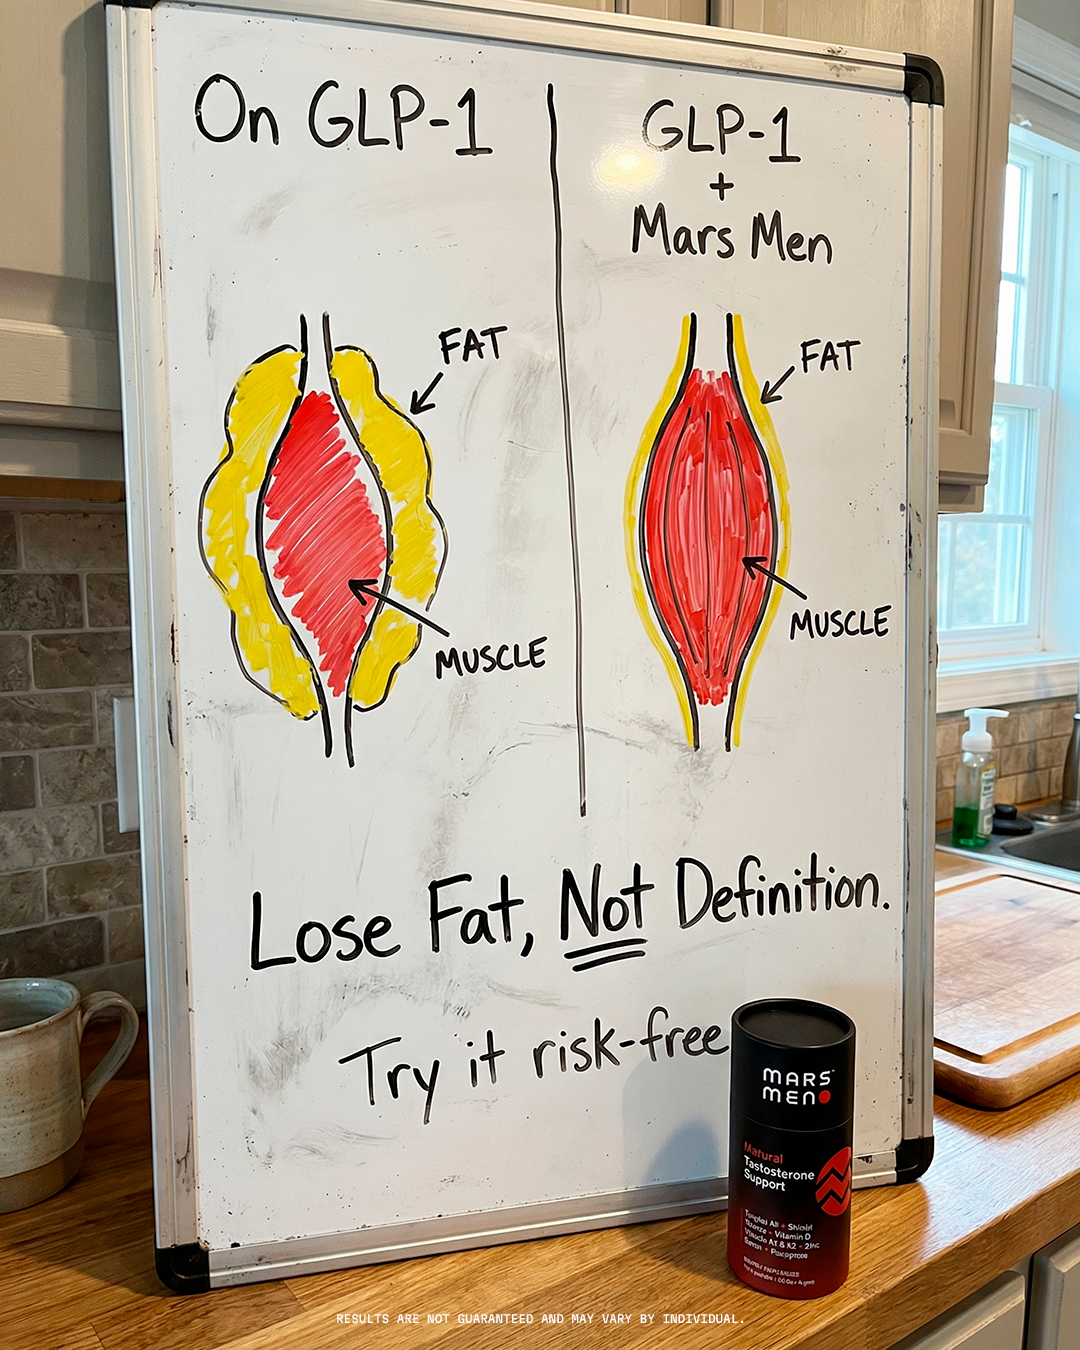 On GLP-1
FAT
MUSCLE
GLP-1
+
Mars Men
FAT
MUSCLE
Lose Fat, Not Definition.
Try it risk-free
MARS
MEN
Natural
Tastosterone
Support
Vitamin D
RESULTS ARE NOT GUARANTEED AND MAY VARY BY INDIVIDUAL.